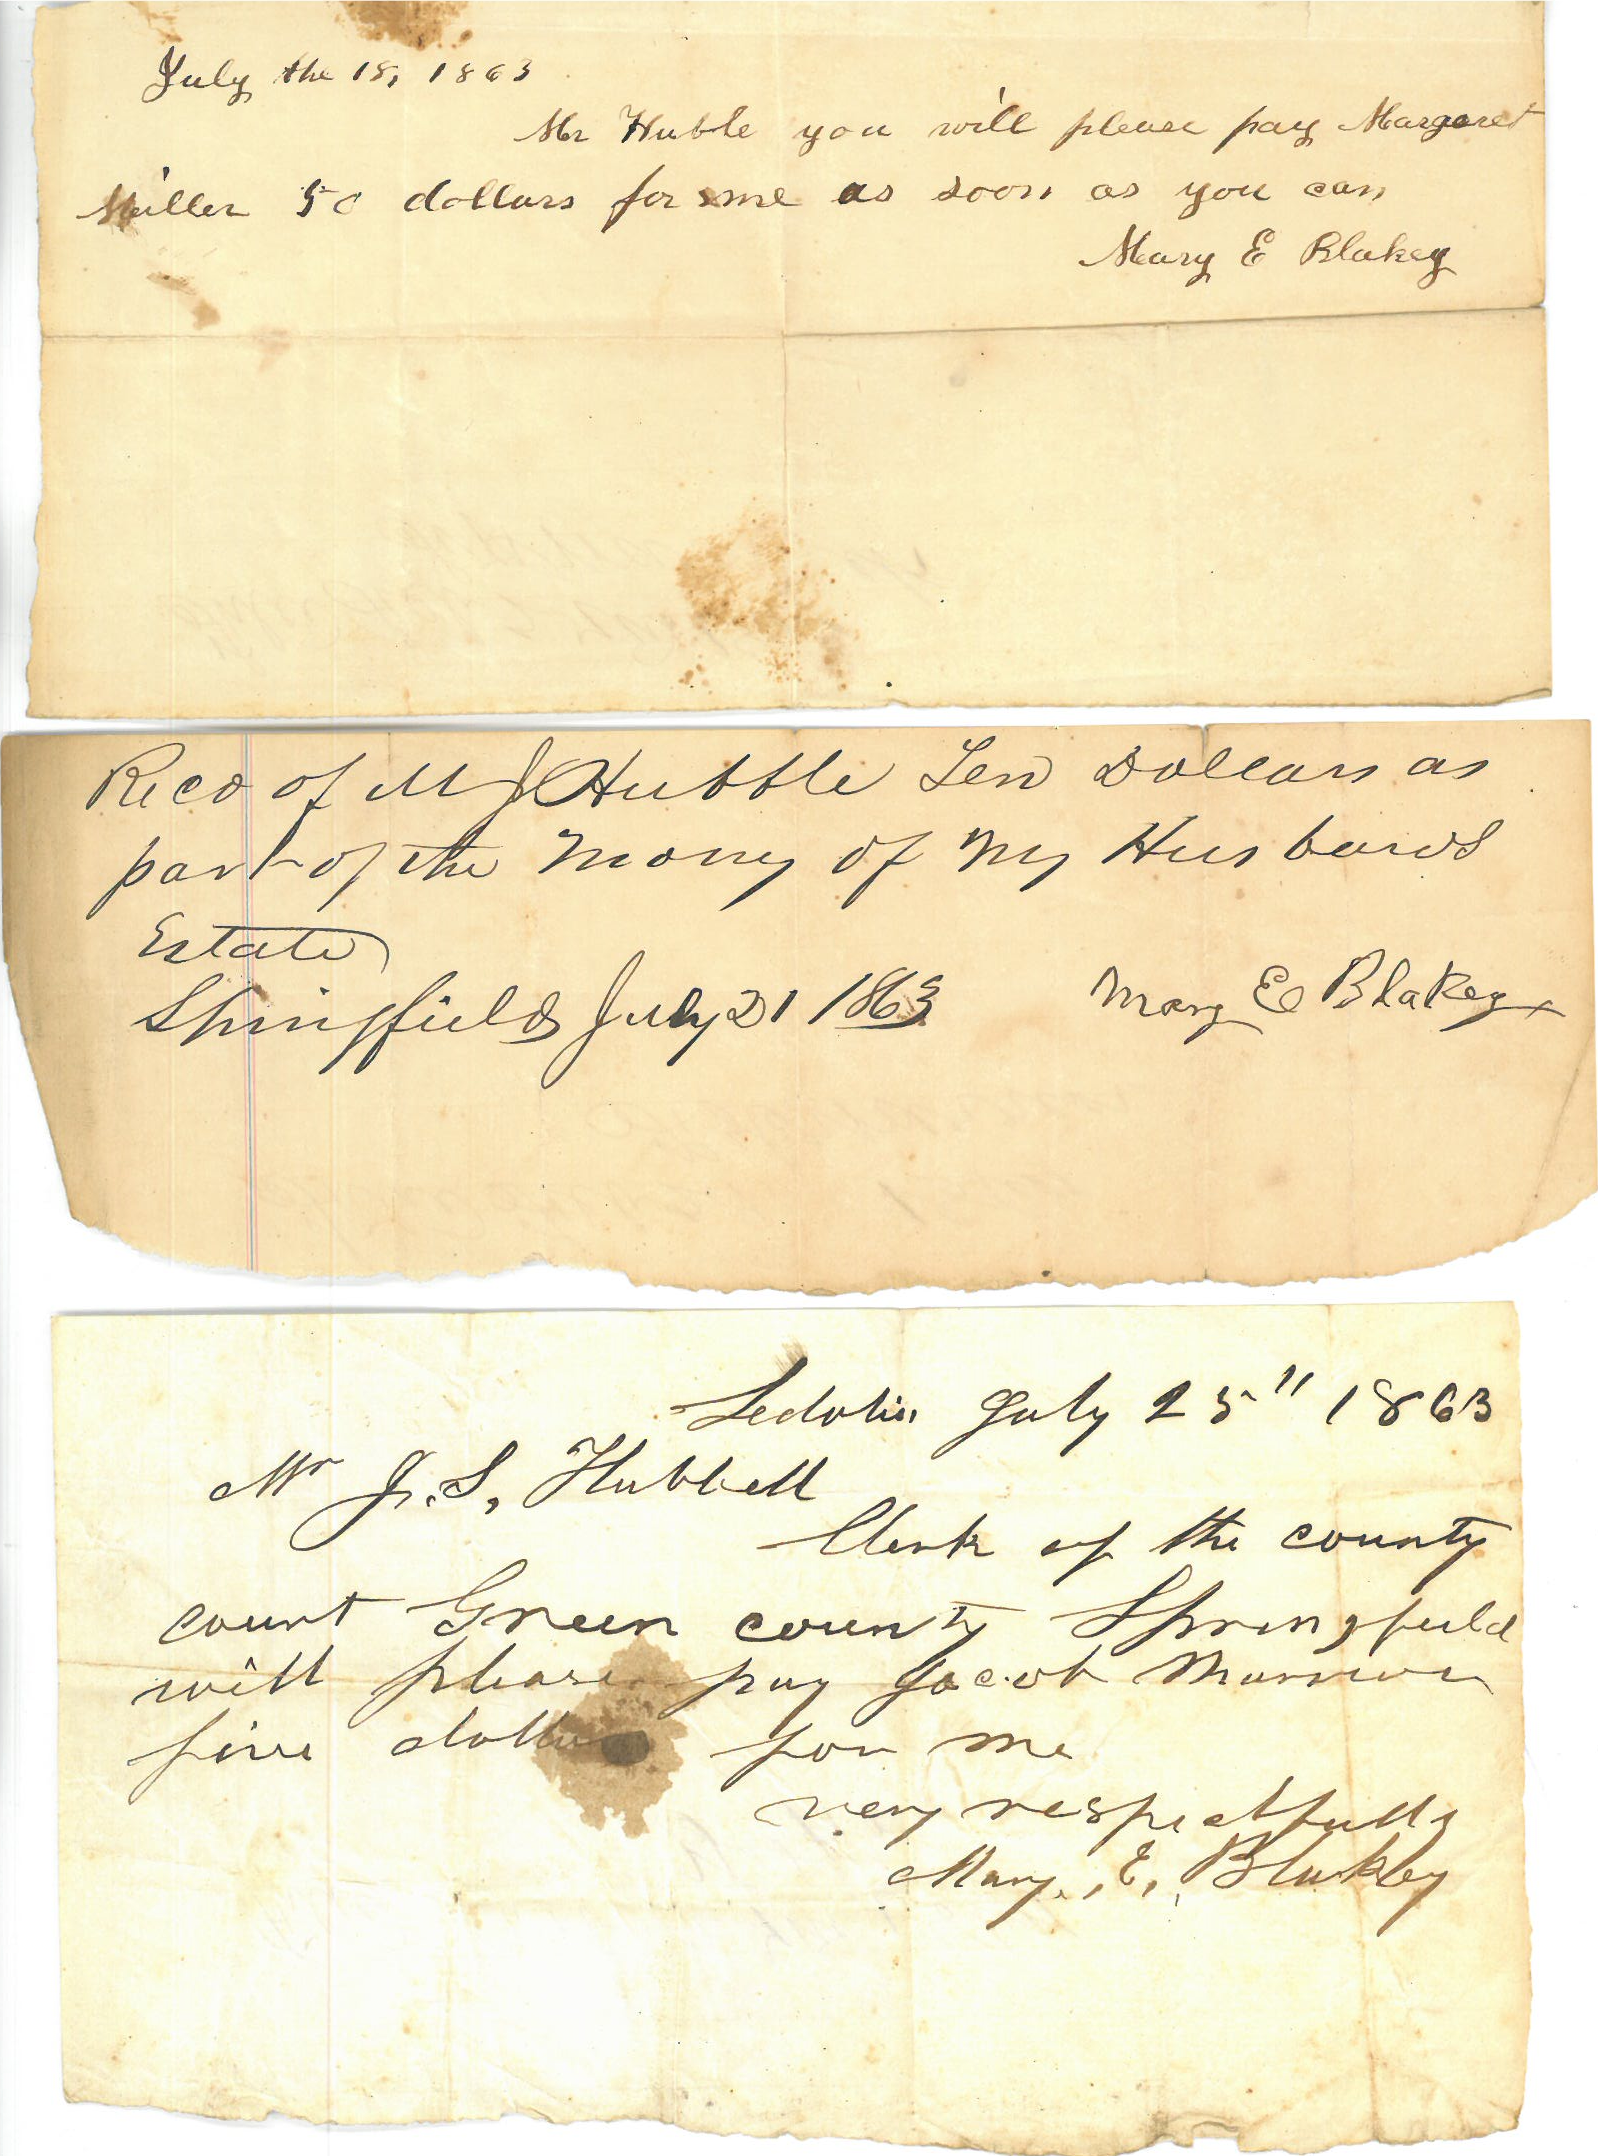 July the 18, 1863
Mr Huble you will please pay Margaret
Miller 50 dollars for me as soon as you can
Mary E Blakey
Recd of M J Hubble Ten Dollars as
part of the Mony of My Husbands
Estate
Springfield July 21 1863 Mary E Blakey
Sedalia July 25" 1863
Mr J. S, Hubbell
Clerk of the county
court Green county Springfield
will please pay Jacob
five dollars for me
very respectfully
Mary, E, Blakley